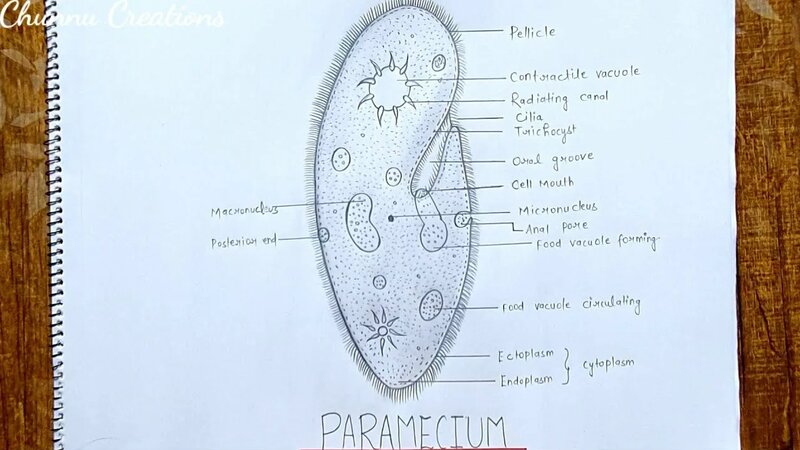 Chunnu Creations
Pellicle
Contractile vacuole
Radiating canal
Cilia
Trichocyst
Oral groove
Cell Mouth
Macronucleus
Micronucleus
Anal pore
Posterior end
Food vacuole forming
Food vacuole circulating
Ectoplasm
Cytoplasm
Endoplasm
PARAMECIUM